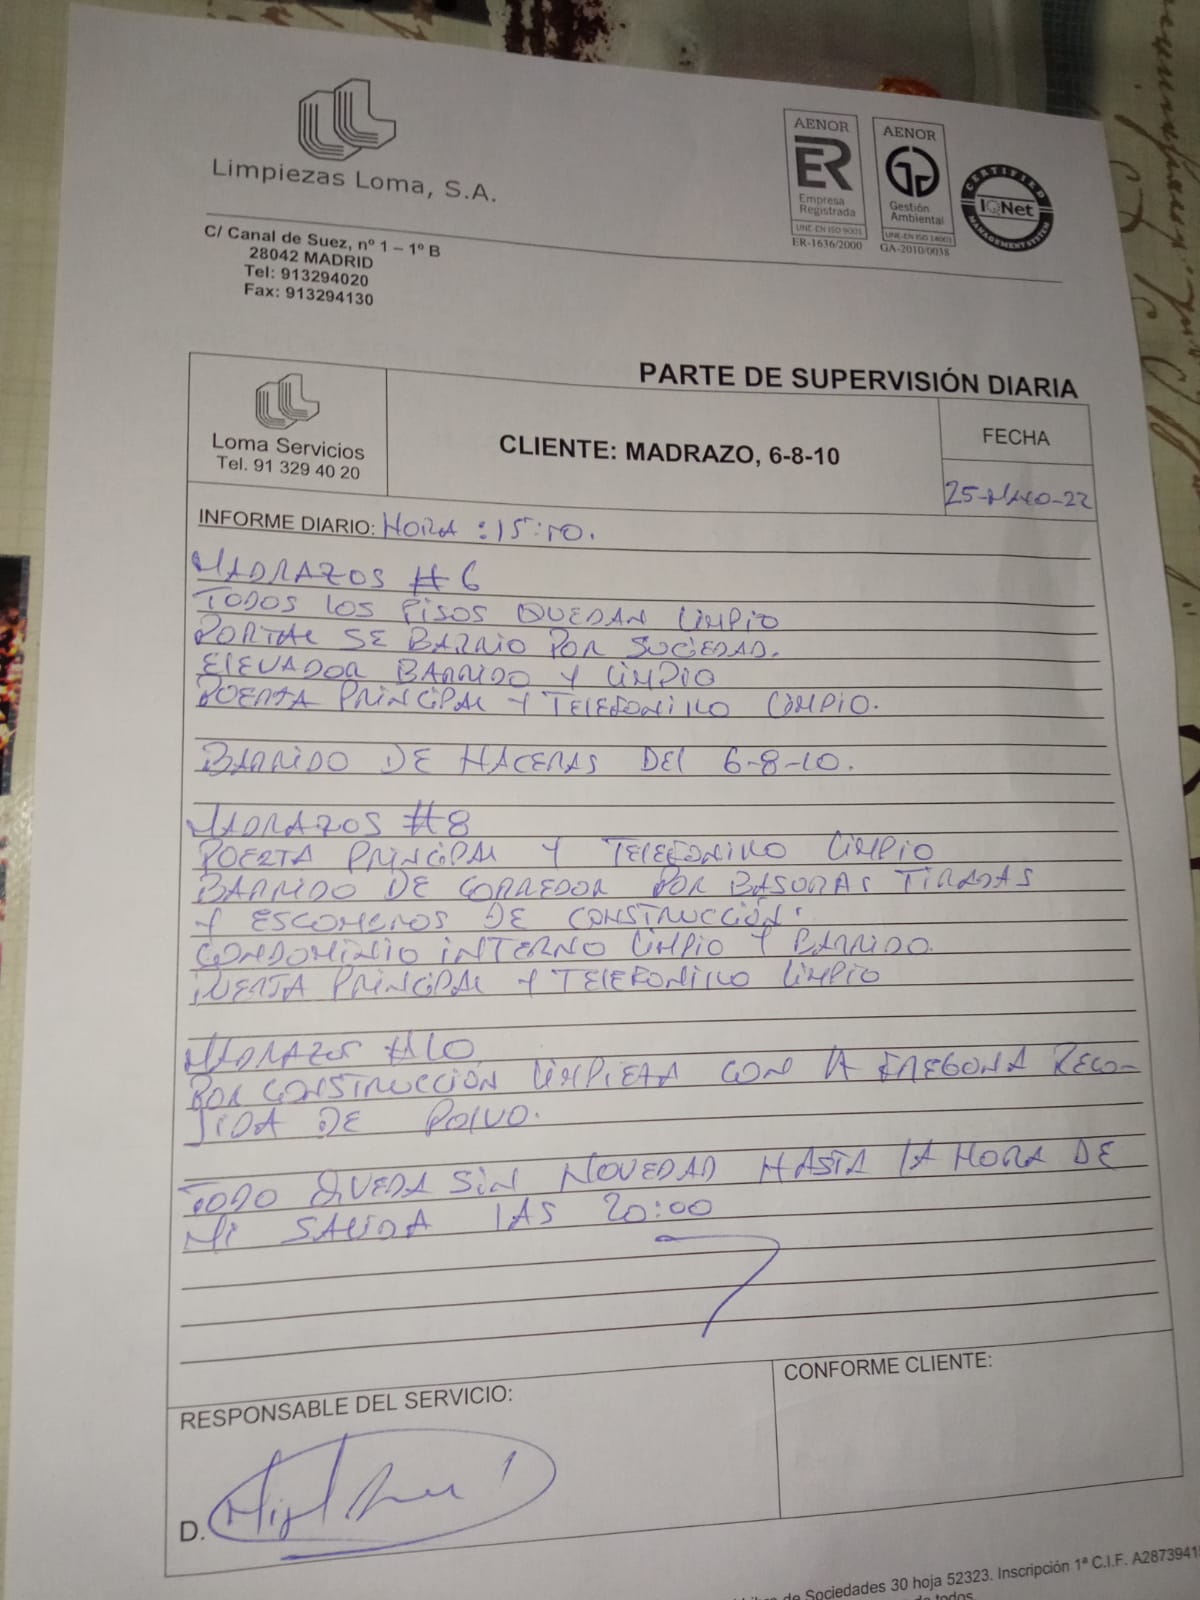 Limpiezas Loma, S.A.
C/ Canal de Suez, nº 1 – 1º B
28042 MADRID
Tel: 913294020
Fax: 913294130
AENOR
ER
Empresa
Registrada
UNE-EN ISO 9001
ER-1636/2000
AENOR
Gestión
Ambiental
UNE-EN ISO 14001
GA-2010/0038
CERTIFIED
IQNet
MANAGEMENT SYSTEM
PARTE DE SUPERVISIÓN DIARIA
Loma Servicios
Tel. 91 329 40 20
CLIENTE: MADRAZO, 6-8-10
FECHA
25-MAYO-22
INFORME DIARIO: HORA : 15:10.
MADRAZOS #6
TODOS LOS PISOS QUEDAN LIMPIO
PORTAL SE BARRIO POR SUCIEDAD.
ELEVADOR BARRIDO Y LIMPIO
PUERTA PRINCIPAL Y TELEFONILLO LIMPIO.
BARRIDO DE HACERAS DEL 6-8-10.
MADRAZOS #8
PUERTA PRINCIPAL Y TELEFONILLO LIMPIO
BARRIDO DE CORREDOR POR BASURAS TIRADAS
Y ESCOMBROS DE CONSTRUCCIÓN.
CONDOMINIO INTERNO LIMPIO Y BARRIDO.
PUERTA PRINCIPAL Y TELEFONILLO LIMPIO
MADRAZOS #10
POR CONSTRUCCIÓN LIMPIEZA CON LA FREGONA RECO-
JIDA DE POLVO.
TODO QUEDA SIN NOVEDAD HASTA LA HORA DE
MI SALIDA LAS 20:00
RESPONSABLE DEL SERVICIO:
CONFORME CLIENTE:
D.
de Sociedades 30 hoja 52323. Inscripción 1ª C.I.F. A2873941